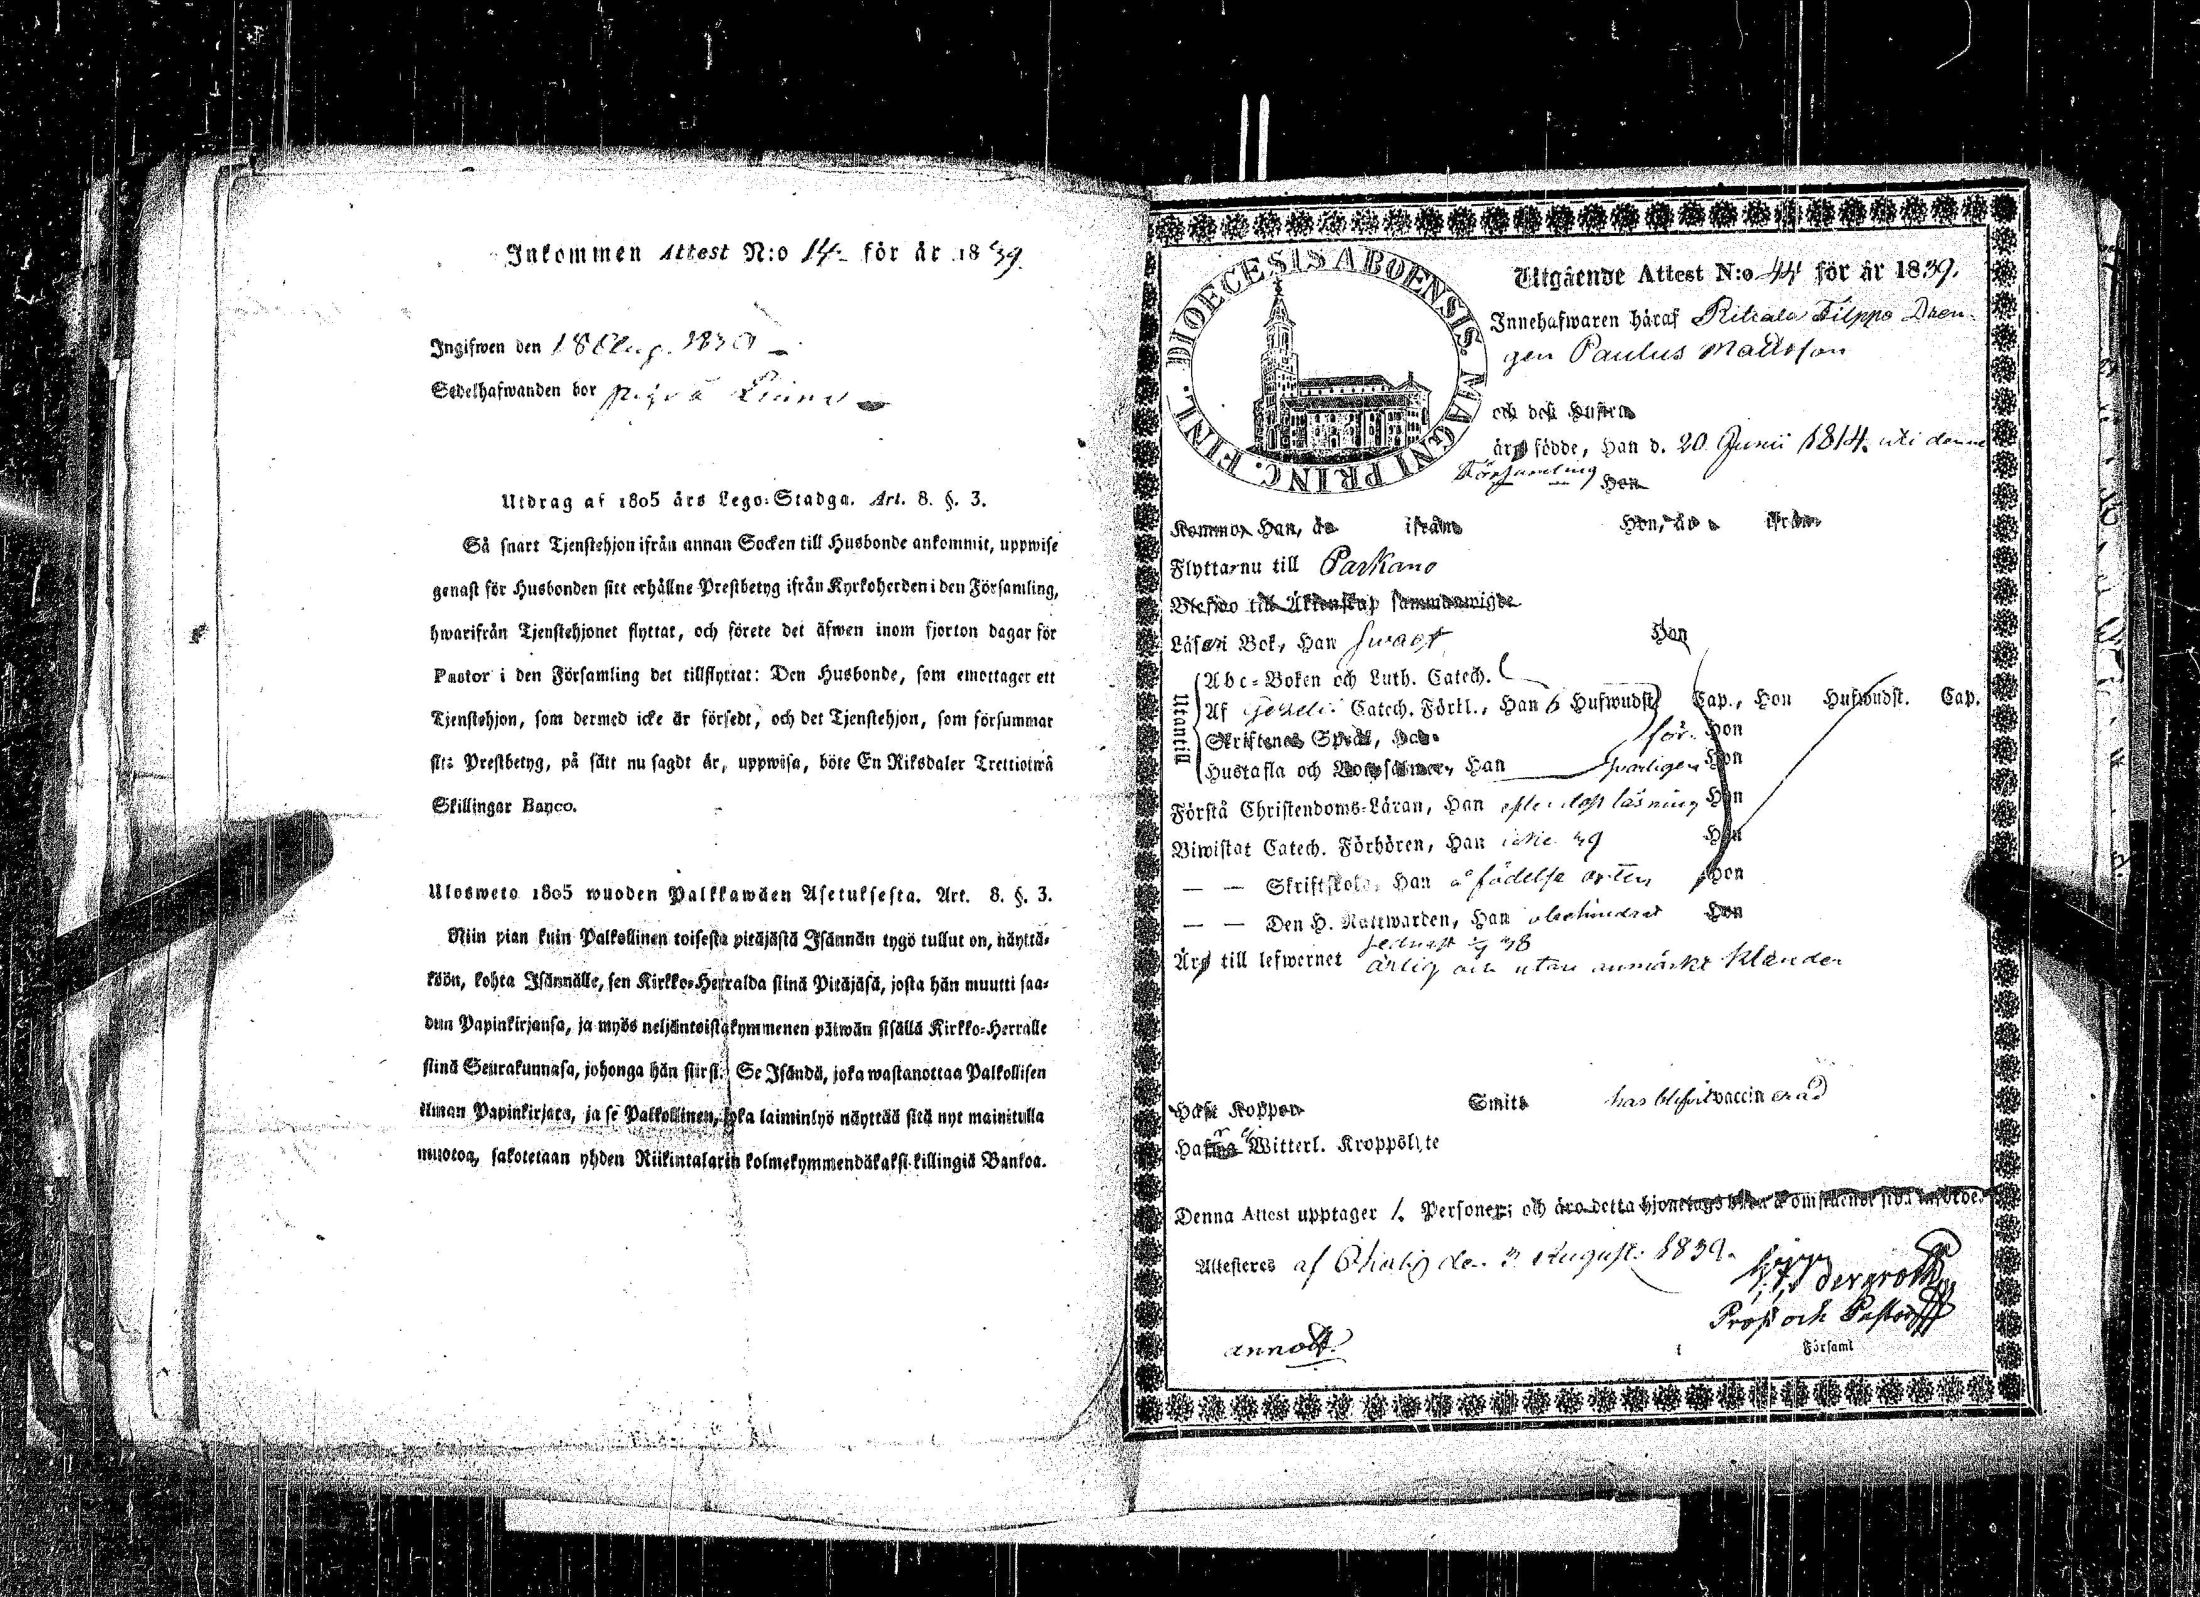 Inkommen Attest N:o 14. för år 1839.
Ingifwen den 18 Aug. 1839
Sedelhafwanden bor på
Utdrag af 1805 års Lego-Stadga. Art. 8. §. 3.
Så snart Tjenstehjon ifrån annan Socken till Husbonde ankommit, uppwise
genast för Husbonden sitt erhållne Prestbetyg ifrån Kyrkoherden i den Församling,
hwarifrån Tjenstehjonet flyttat, och förete det äfwen inom fjorton dagar för
Pastor i den Församling det tillflyttat: Den Husbonde, som emottager ett
Tjenstehjon, som dermed icke är försedt, och det Tjenstehjon, som försummar
sitt Prestbetyg, på sätt nu sagdt är, uppwisa, böte En Riksdaler Trettiotwå
Skillingar Banco.
Ulosweto 1805 wuoden Palkkawäen Asetuksesta. Art. 8. §. 3.
Niin pian kuin Palkollinen toisesta pitäjästä Isännän tygö tullut on, näyttä-
köön, kohta Isännälle, sen Kirkko-Herralda siinä Pitäjäsä, josta hän muutti saa-
dun Papinkirjansa, ja myös neljäntoistakymmenen päiwän sisällä Kirkko-Herralle
siinä Seurakunnasa, johonga hän siirsi: Se Isändä, joka wastanottaa Palkollisen
ilman Papinkirjata, ja se Palkollinen, joka laiminlyö näyttää sitä nyt mainitulla
muotoa, sakotetaan yhden Riikintalarin kolmekymmendäkaksi killingiä Bankoa.
DIOECESIS ABOENSIS. MAGNI PRINC. FINL.
Utgående Attest N:o 44 för år 1839.
Innehafwaren häraf Filppo Dren-
gen Paulus Mattsson
och dess Hustru
äro födde, Han d. 20 Junii 1814. uti denna
Församling Hon
Kommo, Han, år ifrån Hon, år ifrån
Flyttar nu till Parkano
Blefwo till Äktenskap sammanwigde
Läser i Bok, Han swagt Hon
Utantill
Abc-Boken och Luth. Catech.
Af Catech. Förkl., Han 6 Hufwudst. Cap., Hon Hufwudst. Cap.
Skriftenes Språk, Han för- Hon
Hustafla och Han swarligen Hon
Förstå Christendoms-Läran, Han efter dess läsning Hon
Biwistat Catech. Förhören, Han 39 Hon
— — Skriftskola, Han å födelse orten Hon
— — Den H. Nattwarden, Han obehindrad Hon
38
Äro till lefwernet ärlig och utan anmärkt klander
Haft Koppor Smitt har blifwit vaccinerad
Hafwa Witterl. Kroppslyte
Denna Attest upptager 1. Personer; och äro detta hjonelags
Attesteres af den 3 August. 1839.
Prost och Pastor
Församl
annot.